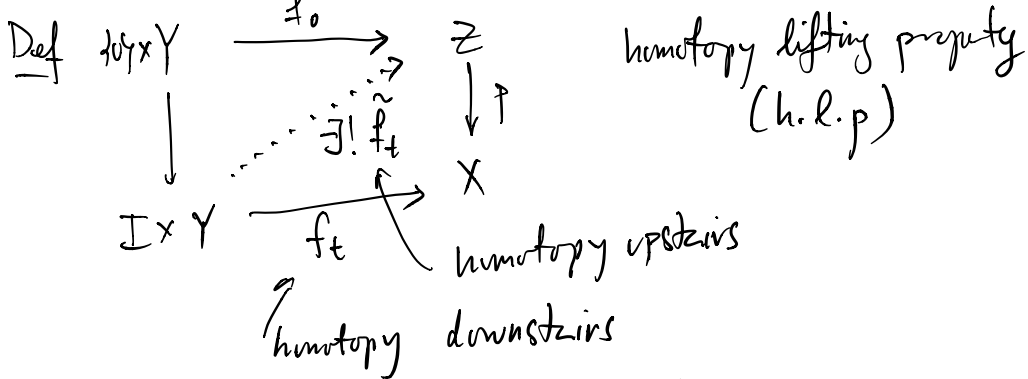 Def {0}×Y f₀ Z homotopy lifting property
p (h.l.p)
∃! f̃ₜ
X
I × Y fₜ
homotopy upstairs
homotopy downstairs